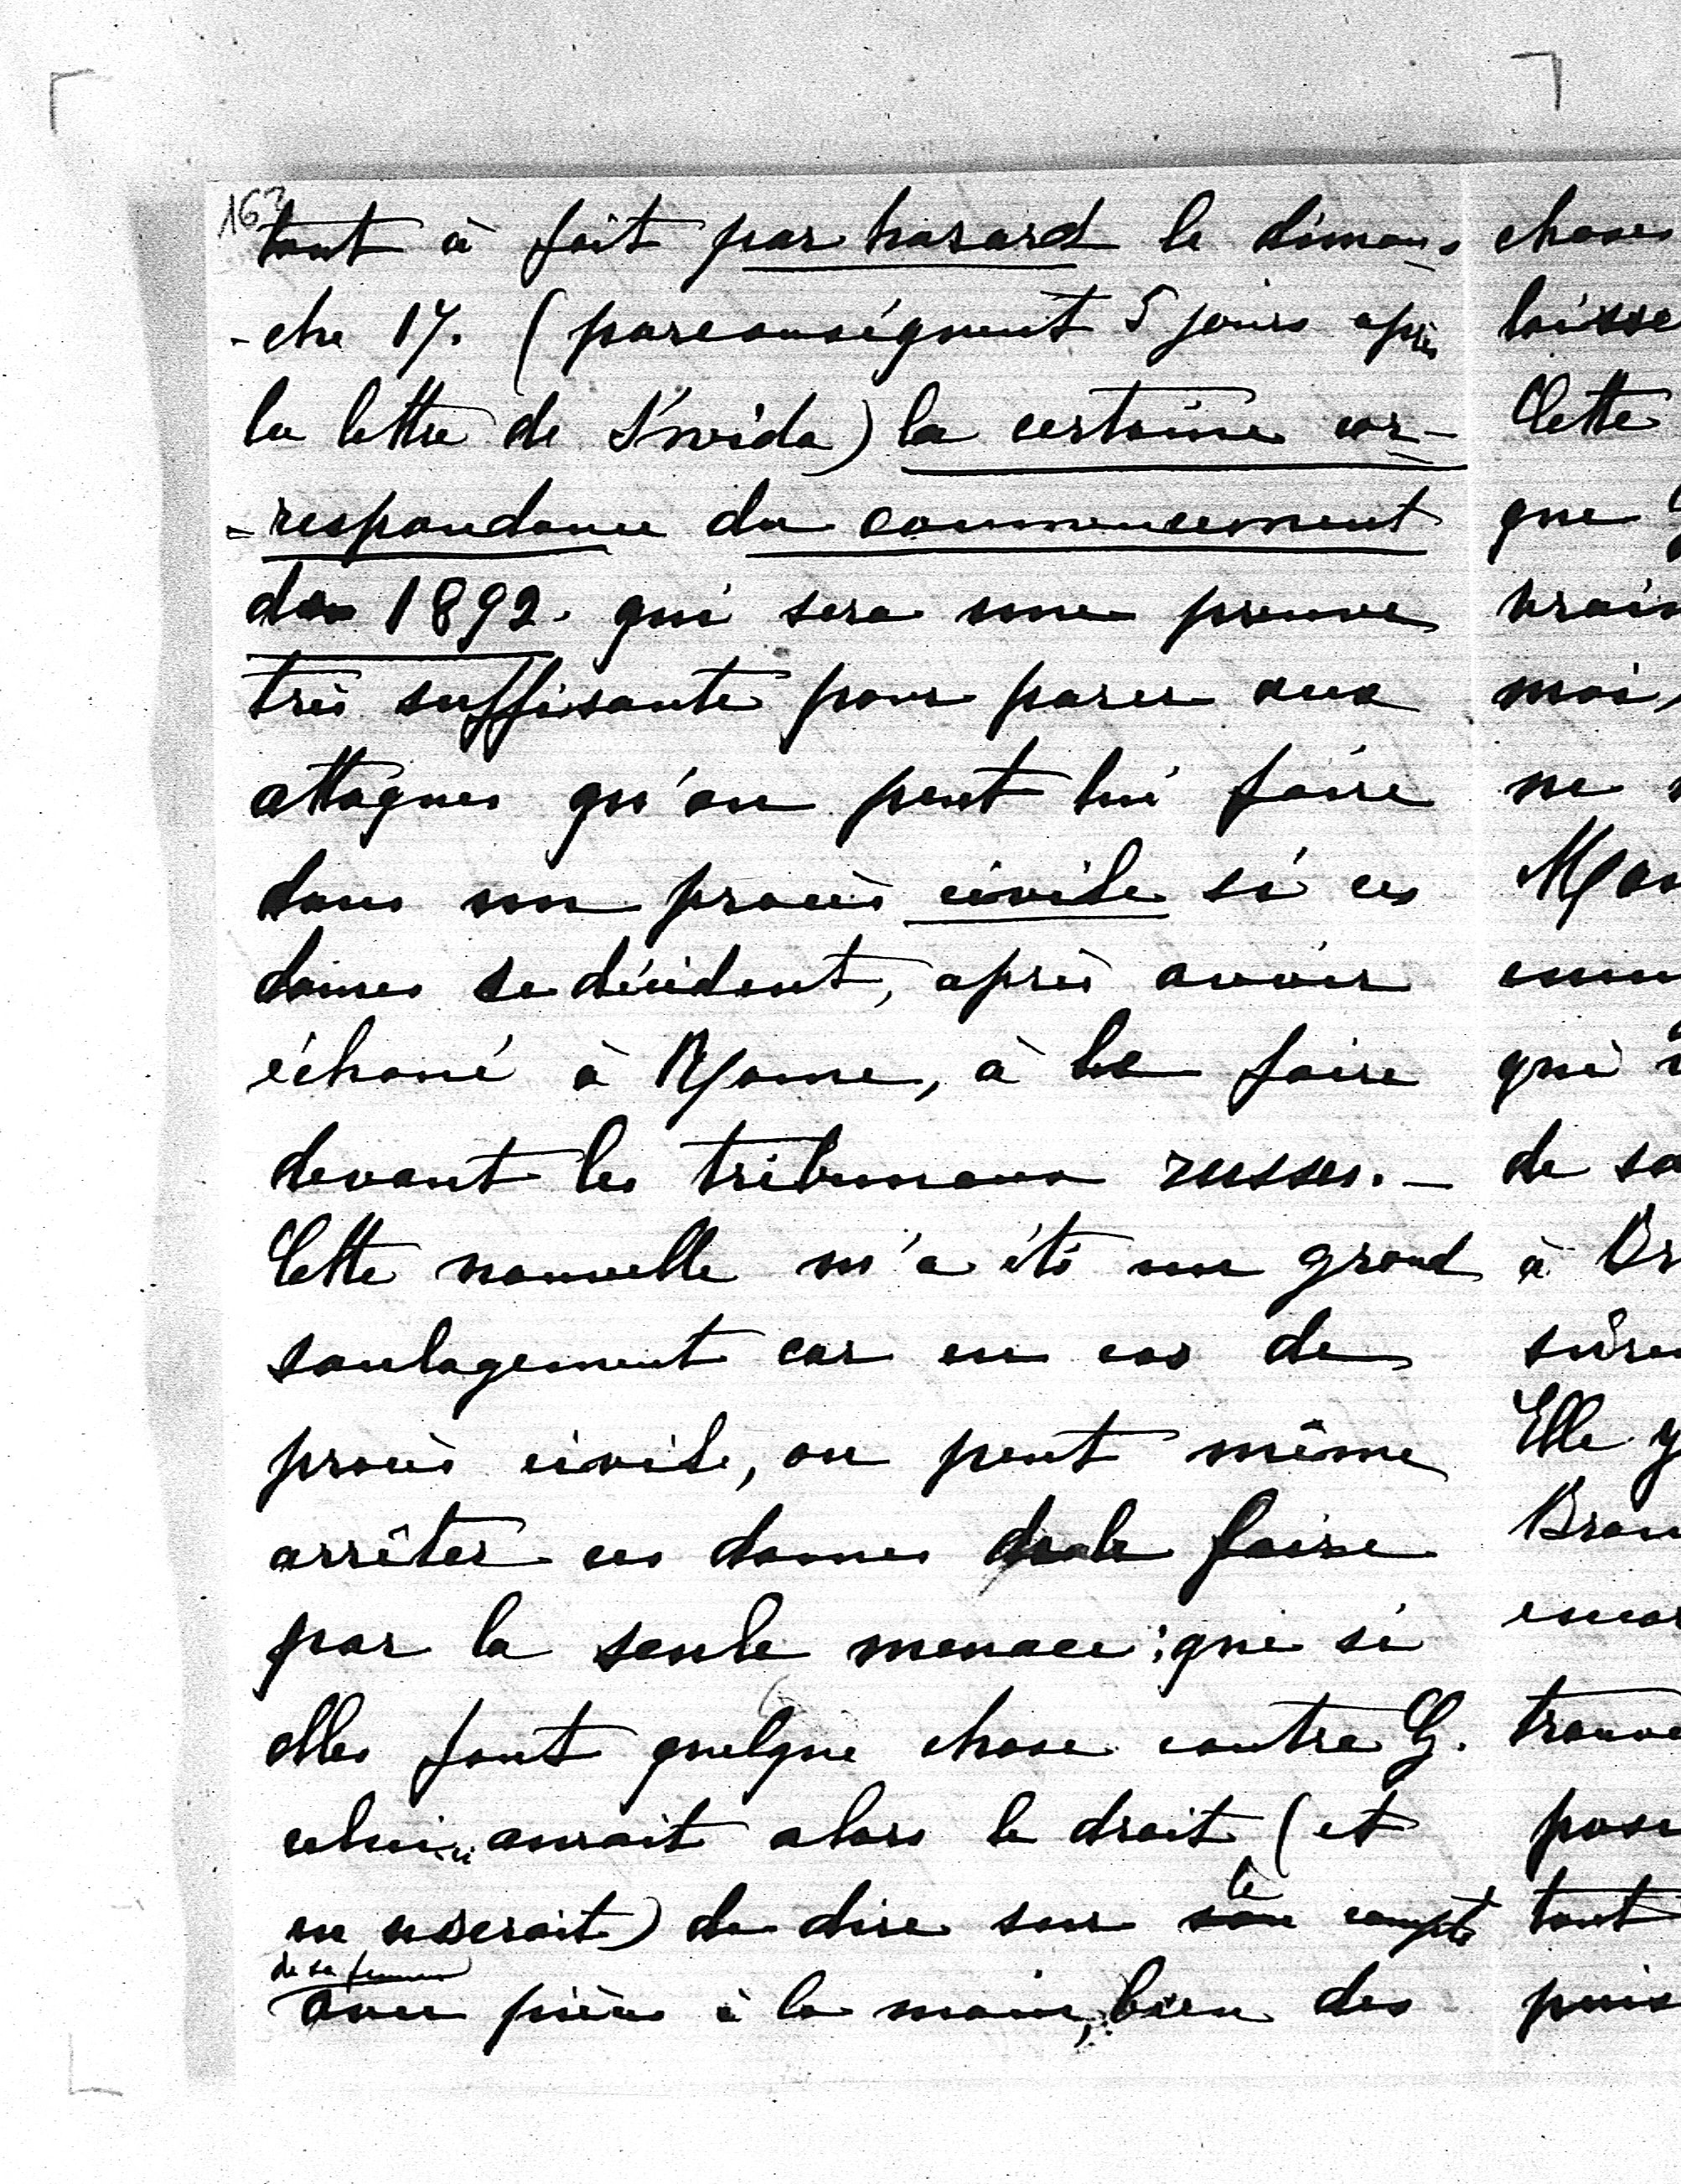 163
tout à fait par hasard le diman-
-che 17. (parconséquent 5 jours après
la lettre de ) la certaine cor-
=respondance du commencement
de 1892. qui sera une preuve
très suffisante pour parer aux
attaques qu'on peut lui faire
dans un procès civile si ces
dames se décident, après avoir
échoué à Rome, à le faire
devant les tribunaux russes. -
Cette nouvelle m'a été un grand
soulagement car en cas de
procès civile, on peut même
arrêter ces dames de le faire
par la seule menace: que si
elles font quelque chose contre G.
celui-ci aurait alors le droit (et
en userait) de dire sur le compte
de sa femme
avec pièces à la main, bien des
choses
laisse
Cette
que
vrai
moi,
ne
qui
de sa
à
Elle y
trouve
pour
tout
puis